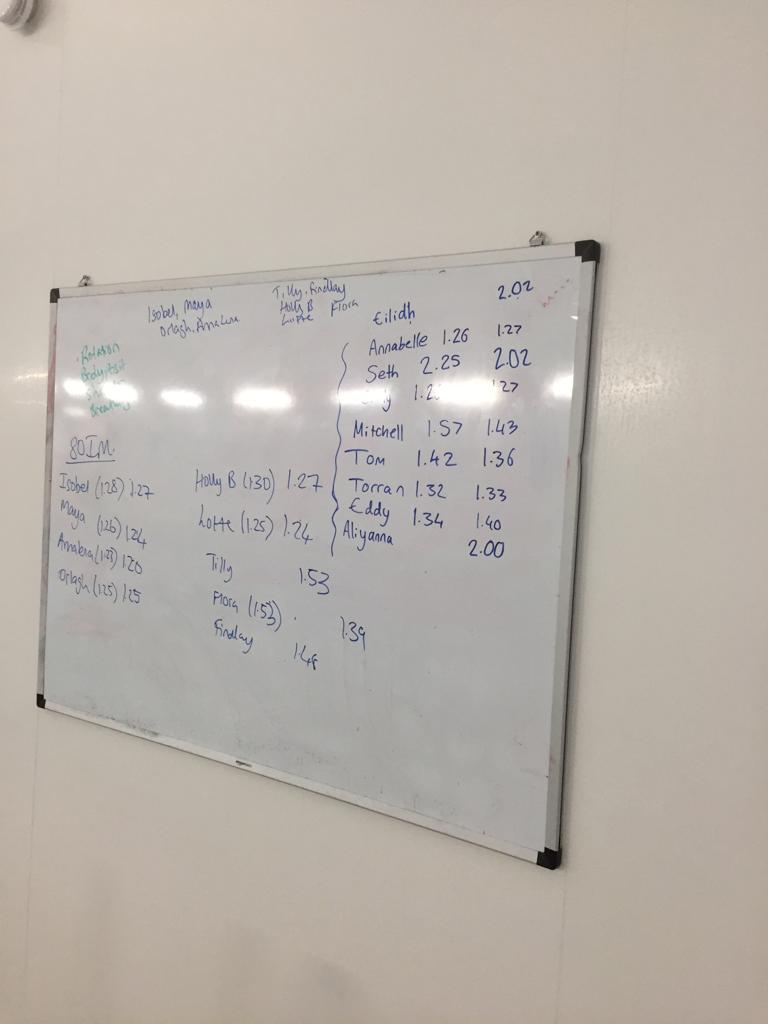 Isobel, Maya
Orlagh, Annalena
Tilly, Findlay
Holly B Flora
Lotte
Rotation
80 I.M.
Isobel (1.28) 1.27
Maya (1.26) 1.24
(1.23) 1.20
Orlagh (1.25) 1.25
Holly B (1.30) 1.27
Lotte (1.25) 1.24
Tilly 1.53
Flora (1.53) 1.39
Findlay
Eilidh 2.02
Annabelle 1.26 1.27
Seth 2.25 2.02
1.27
Mitchell 1.57 1.43
Tom 1.42 1.36
Torran 1.32 1.33
Eddy 1.34 1.40
Aliyanna 2.00